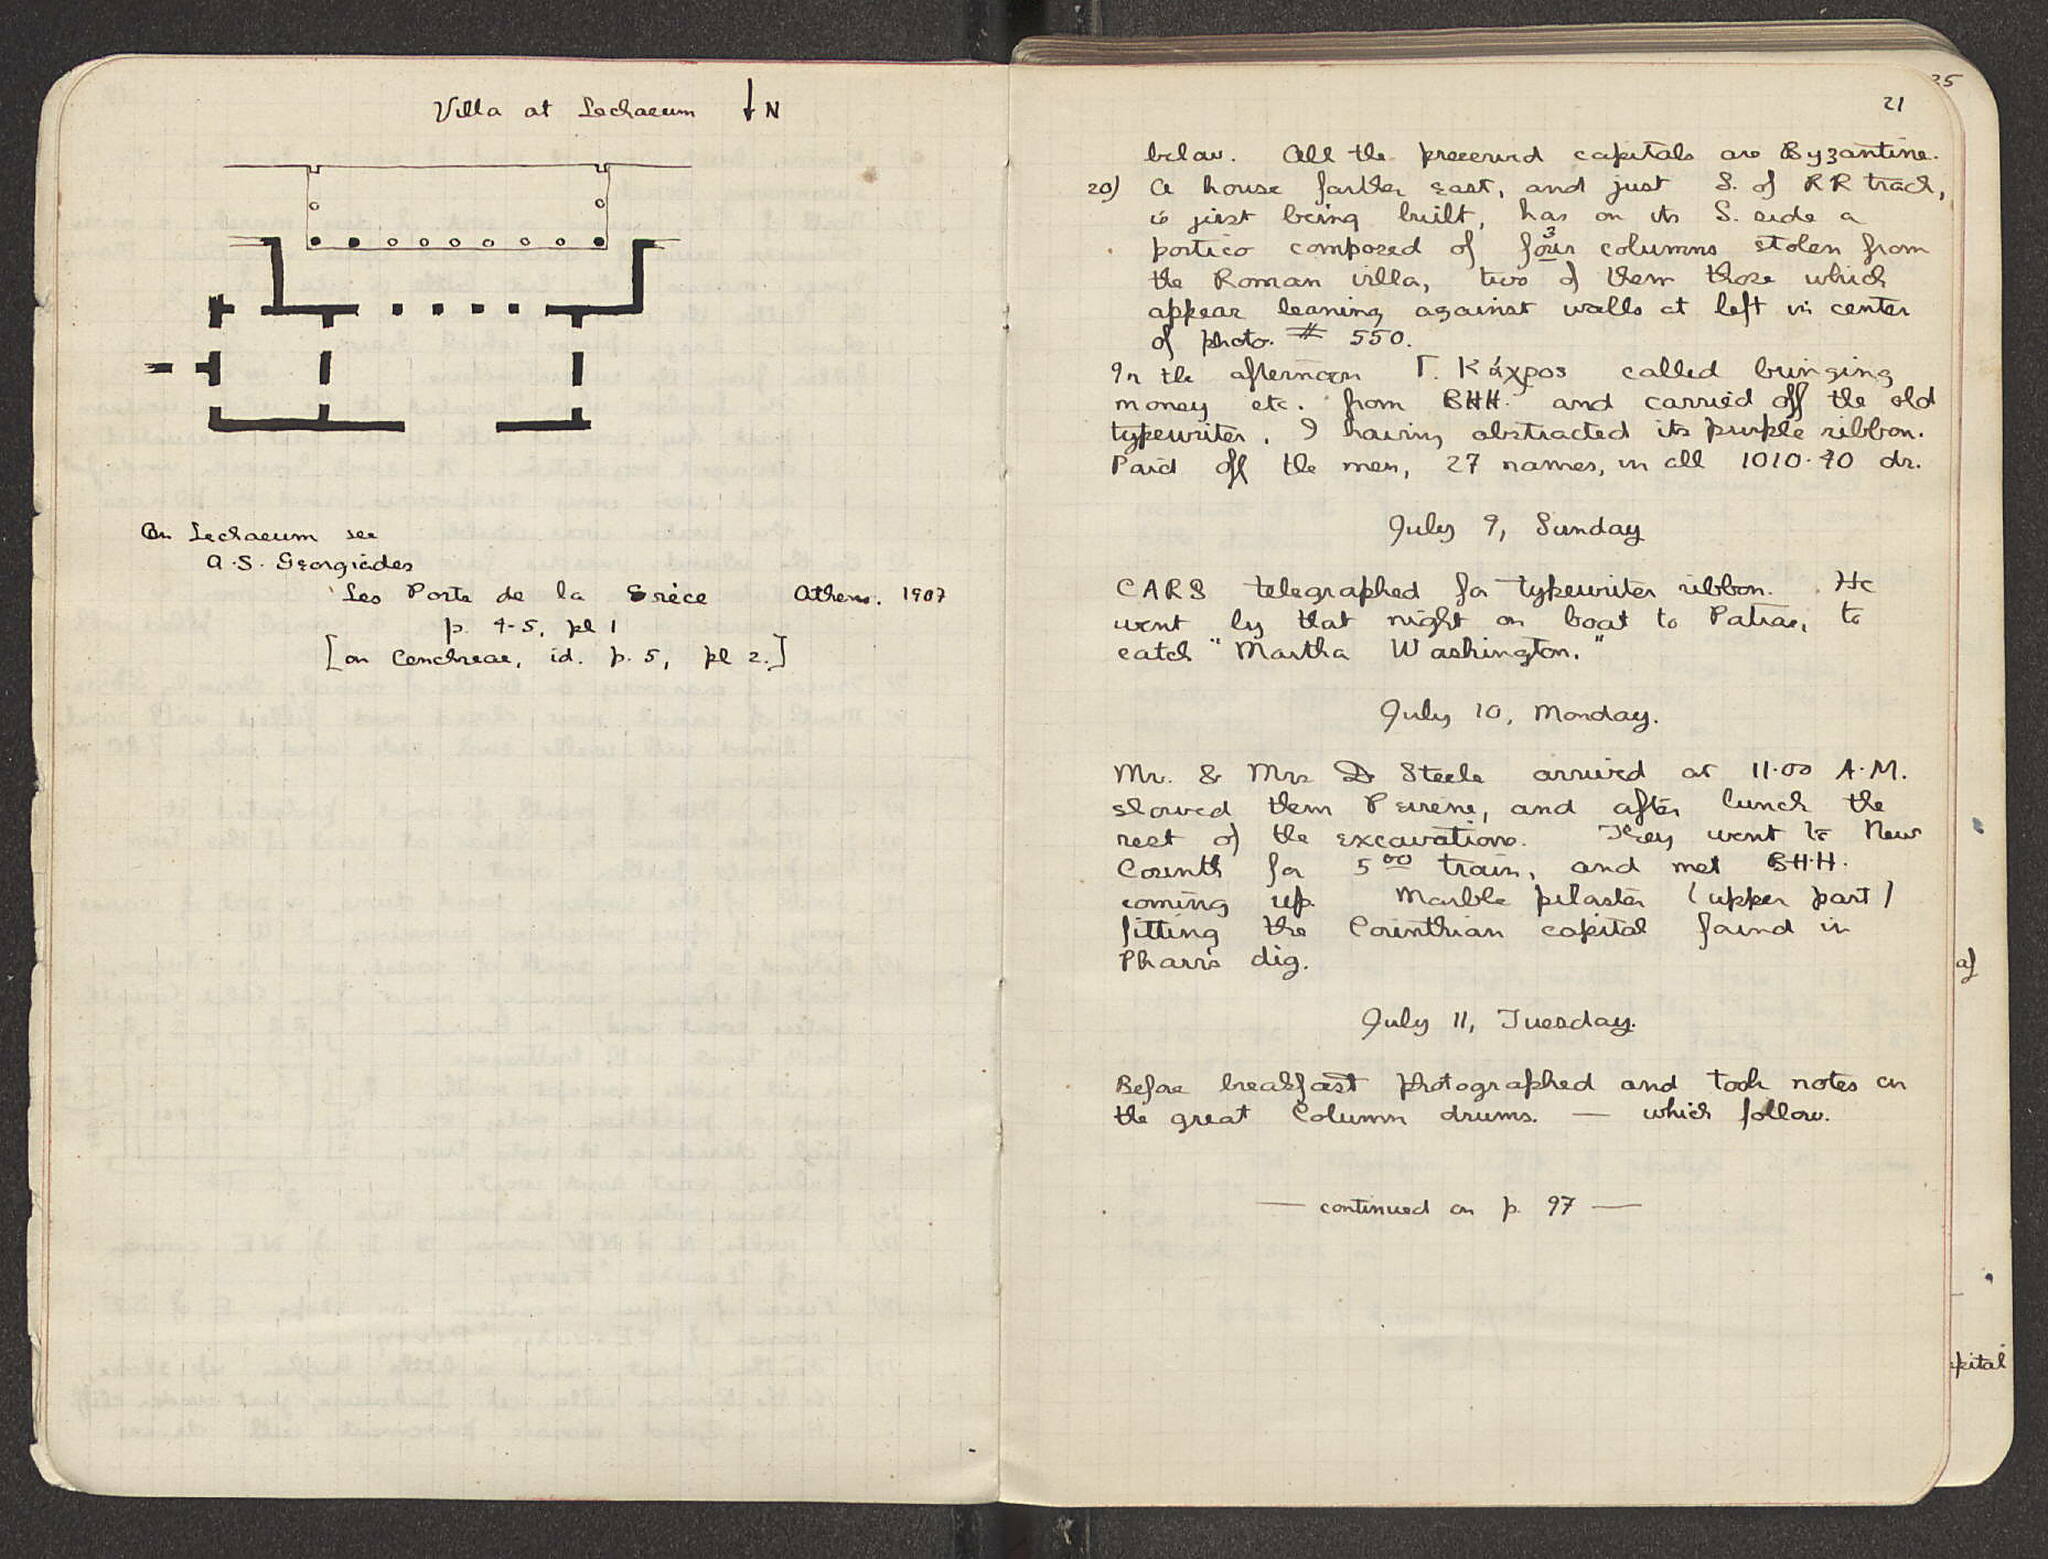 Villa at Lechaeum ↓ N
On Lechaeum see
A.S. Georgiades
Les Ports de la Grèce Athens. 1907
p. 4-5, pl 1
[on Cenchreae, id. p. 5, pl 2.]
35
21
below. All the preserved capitals are Byzantine.
20) A house farther east, and just S. of RR track,
is just being built, has on its S. side a
3
portico composed of four columns stolen from
the Roman villa, two of them those which
appear leaning against walls at left in center
of photo. # 550.
In the afternoon Γ. Κάχρος called bringing
money etc. from BHH. and carried off the old
typewriter, I having abstracted its purple ribbon.
Paid off the men, 27 names, in all 1010.40 dr.
July 9, Sunday
CARS telegraphed for typewriter ribbon. He
went by that night on boat to Patras, to
catch "Martha Washington."
July 10, Monday.
Mr. & Mrs D Steele arrived at 11.00 A.M.
showed them Peirene, and after lunch the
rest of the excavations. They went to New
Corinth for 5⁰⁰ train, and met B.H.H.
coming up. Marble pilaster (upper part)
fitting the Corinthian capital found in
Pharr's dig.
July 11, Tuesday.
Before breakfast photographed and took notes on
the great Column drums. — which follow.
— continued on p. 97 —
of
pital